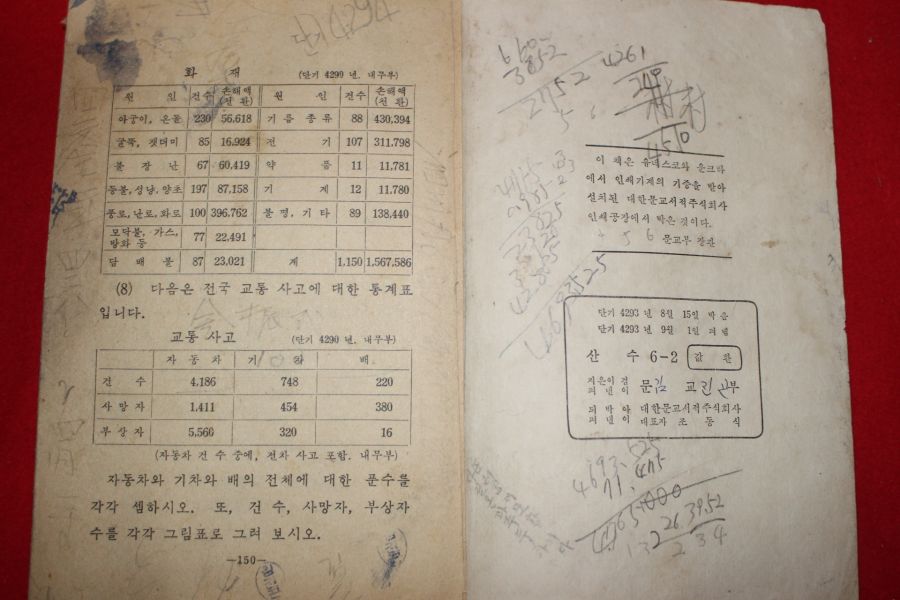 단기 4294
화 재 (단기 4290 년, 내무부)
원 인 건수 손해액(천 환) 원 인 건수 손해액(천 환)
아궁이, 온돌 230 56,618 기름 종류 88 430,394
굴뚝, 잿더미 85 16,924 전 기 107 311,798
불 장 난 67 60,419 약 품 11 11,781
등불, 성냥, 양초 197 87,158 기 계 12 11,780
풍로, 난로, 화로 100 396,762 불 명, 기 타 89 138,440
모닥불, 가스, 방화 등 77 22,491
담 배 불 87 23,021 계 1,150 1,567,586
(8) 다음은 전국 교통 사고에 대한 통계표
입니다.
교통 사고 (단기 4290 년, 내무부)
자 동 차 기 차 배
건 수 4,186 748 220
사 망 자 1,411 454 380
부 상 자 5,560 320 16
(자동차 건 수 중에, 전차 사고 포함. 내무부)
자동차와 기차와 배의 전체에 대한 푼수를
각각 셈하시오. 또, 건 수, 사망자, 부상자
수를 각각 그림표로 그려 보시오.
—150—
3852
2752
5 6
4261
240
4510
이 책은 유네스코와 운크라
에서 인쇄기계의 기증을 받아
설치된 대한문교서적주식회사
인쇄공장에서 박은 것이다.
4 5 6 문교부 장관
단기 4293 년 8월 15일 박음
단기 4293 년 9월 1일 펴냄
산 수 6-2 값 환
지은이 겸
펴낸이 문 교 부
펴낸이 대한문교서적주식회사
대표자 조 동 식
4693.525
65000
26 39.52
2 3 4